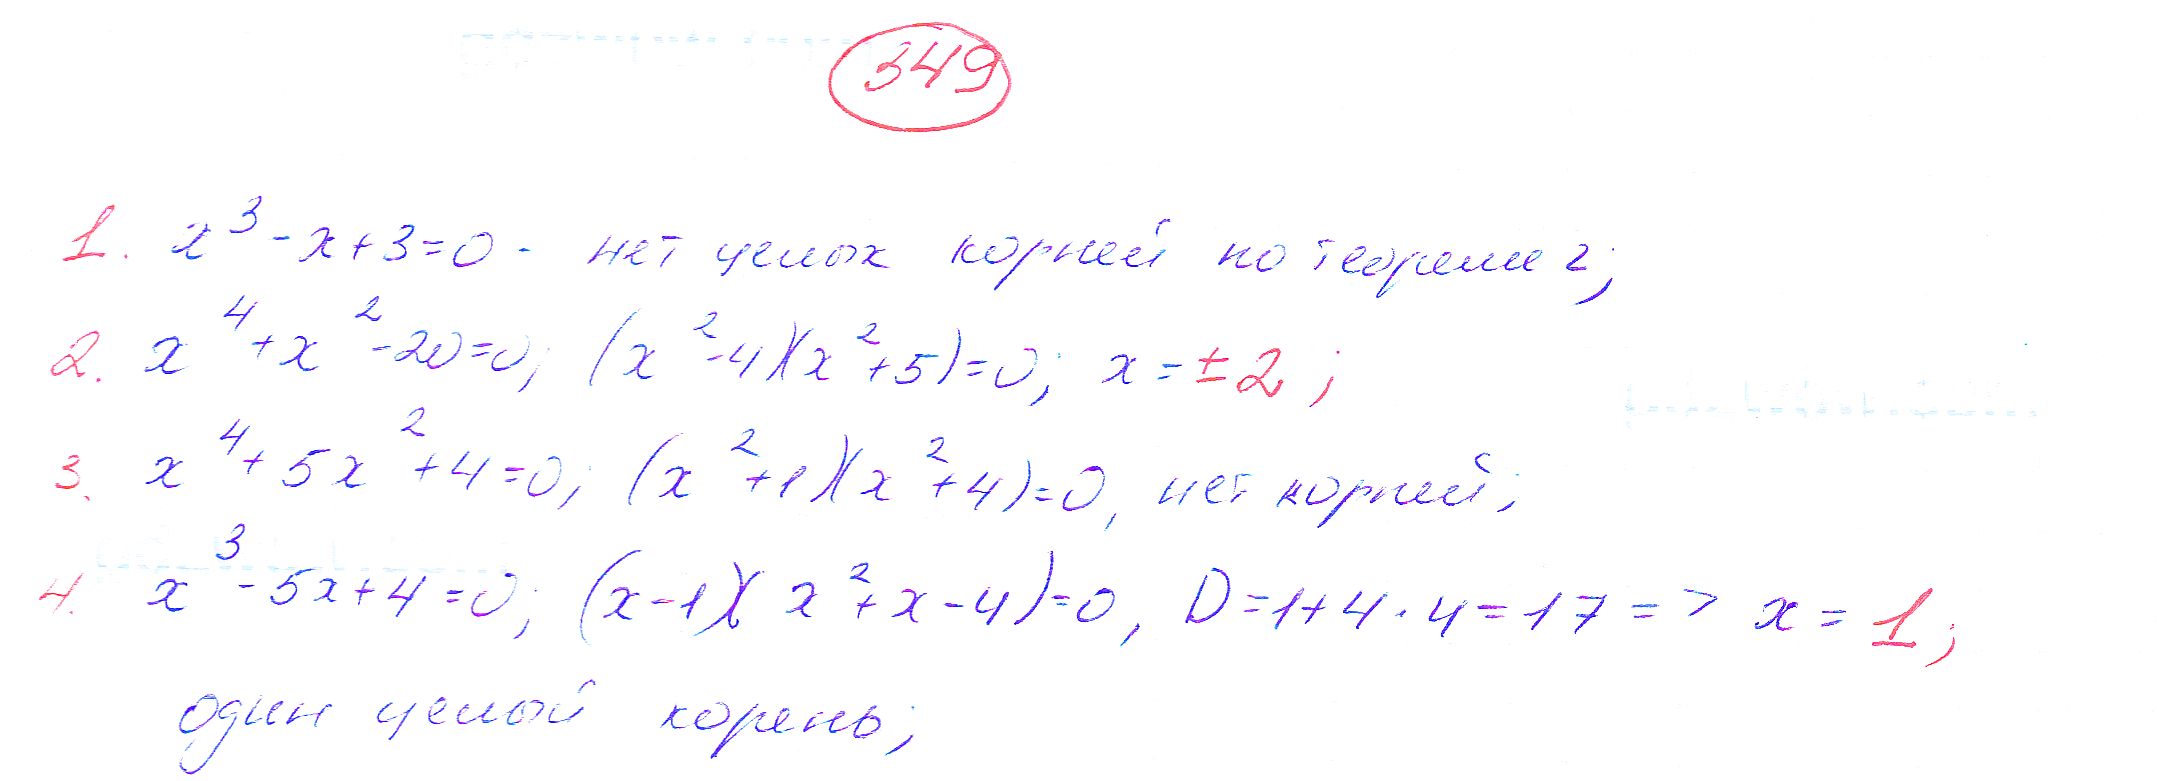 349
1. x³ - x + 3 = 0 - нет целых корней по теореме 2;
2. x⁴ + x² - 20 = 0; (x² - 4)(x² + 5) = 0; x = ± 2;
3. x⁴ + 5x² + 4 = 0; (x² + 1)(x² + 4) = 0, нет корней;
4. x³ - 5x + 4 = 0; (x - 1)(x² + x - 4) = 0, D = 1 + 4 · 4 = 17 => x = 1;
один целый корень;